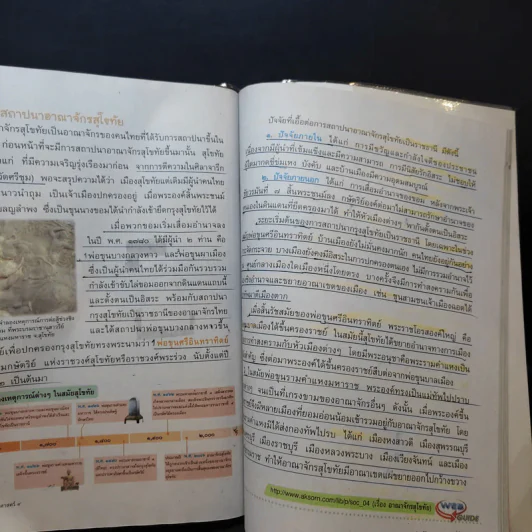 สถาปนาอาณาจักรสุโขทัย
าจักรสุโขทัยเป็นอาณาจักรของคนไทยที่ได้รับการสถาปนาขึ้นใน
ก่อนหน้าที่จะมีการสถาปนาอาณาจักรสุโขทัยขึ้นมานั้น สุโขทัย
แก่ ที่มีความเจริญรุ่งเรืองมาก่อน จากการตีความในศิลาจารึก
(วัดศรีชุม) พอจะสรุปความได้ว่า เมืองสุโขทัยแต่เดิมมีผู้นำคนไทย
นาวนำถุม เป็นเจ้าเมืองปกครองอยู่ เมื่อพระองค์สิ้นพระชนม์
สบาดโขลญลำพง ซึ่งเป็นขุนนางขอมได้นำกำลังเข้ายึดกรุงสุโขทัยไว้ได้
เมื่อพวกขอมเริ่มเสื่อมอำนาจลง
ในปี พ.ศ. ๑๗๘๐ ได้มีผู้นำ ๒ ท่าน คือ
พ่อขุนบางกลางหาว และพ่อขุนผาเมือง
ซึ่งเป็นผู้นำคนไทยได้ร่วมมือกันรวบรวม
กำลังเข้าขับไล่ขอมออกจากดินแดนแถบนี้
และตั้งตนเป็นอิสระ พร้อมกับสถาปนา
กรุงสุโขทัยเป็นราชธานีของอาณาจักรไทย
และได้สถาปนาพ่อขุนบางกลางหาวขึ้น
เพื่อปกครองกรุงสุโขทัยทรงพระนามว่า พ่อขุนศรีอินทราทิตย์
มกษัตริย์ แห่งราชวงศ์สุโขทัยหรือราชวงศ์พระร่วง นับตั้งแต่ปี
๐ เป็นต้นมา
เหตุการณ์ต่างๆ ในสมัยสุโขทัย
ปัจจัยที่เอื้อต่อการสถาปนาอาณาจักรสุโขทัยเป็นราชธานี มีดังนี้
๑. ปัจจัยภายใน ได้แก่ การมีขวัญและกำลังใจดีของประชาชน
เนื่องจากมีผู้นำที่เข้มแข็งและมีความสามารถ การมีนิสัยรักอิสระ ไม่ชอบให้
มีใครมากดขี่ข่มเหง บังคับ และบ้านเมืองมีความอุดมสมบูรณ์
๒. ปัจจัยภายนอก ได้แก่ การเสื่อมอำนาจของขอม หลังจากพระเจ้า
ชัยวรมันที่ ๗ สิ้นพระชนม์ลง กษัตริย์องค์ต่อมาไม่สามารถรักษาอำนาจของ
ตนเองในดินแดนที่ยึดครองมาได้ ทำให้หัวเมืองต่างๆ พากันตั้งตนเป็นอิสระ
ระยะเริ่มต้นของการสถาปนากรุงสุโขทัยเป็นราชธานี โดยเฉพาะในช่วง
พ่อขุนศรีอินทราทิตย์ บ้านเมืองยังไม่มั่นคงมากนัก คนไทยยังอยู่กันอย่าง
กระจาย บางเมืองยังคงมีอิสระในการปกครองตนเอง ไม่มีการรวมอำนาจไว้
ศูนย์กลางเมืองใดเมืองหนึ่งโดยตรง บางครั้งจึงมีการทำสงครามกันเพื่อ
อำนาจและขยายอาณาเขตของเมือง เช่น ขุนสามชนเจ้าเมืองฉอดได้
เมืองตาก
เมื่อสิ้นรัชสมัยของพ่อขุนศรีอินทราทิตย์ พระราชโอรสองค์ใหญ่ คือ
บานเมืองได้ขึ้นครองราชย์ ในสมัยนี้สุโขทัยได้ขยายอำนาจทางการเมือง
การทำสงครามกับหัวเมืองต่างๆ โดยมีพระอนุชาคือพระรามคำแหงเป็น
สำคัญ ซึ่งต่อมาพระองค์ได้ขึ้นครองราชย์สืบต่อจากพ่อขุนบานเมือง
ในสมัยพ่อขุนรามคำแหงมหาราช พระองค์ทรงเป็นแม่ทัพไปปราบ
ต่างๆ จนเป็นที่เกรงขามของอาณาจักรอื่นๆ ดังนั้น เมื่อพระองค์ขึ้น
จึงมีหลายเมืองที่ยอมอ่อนน้อมเข้ารวมอยู่กับอาณาจักรสุโขทัย โดย
ได้ส่งกองทัพไปรบ ได้แก่ เมืองหงสาวดี เมืองสุพรรณบุรี
เมืองราชบุรี เมืองหลวงพระบาง เมืองเวียงจันทน์ และเมือง
ราช ทำให้อาณาจักรสุโขทัยมีอาณาเขตแผ่ขยายออกไปกว้างขวาง
http://www.aksorn.com/lib/p/soc_04 (เรื่อง อาณาจักรสุโขทัย)
WEB
GUIDE